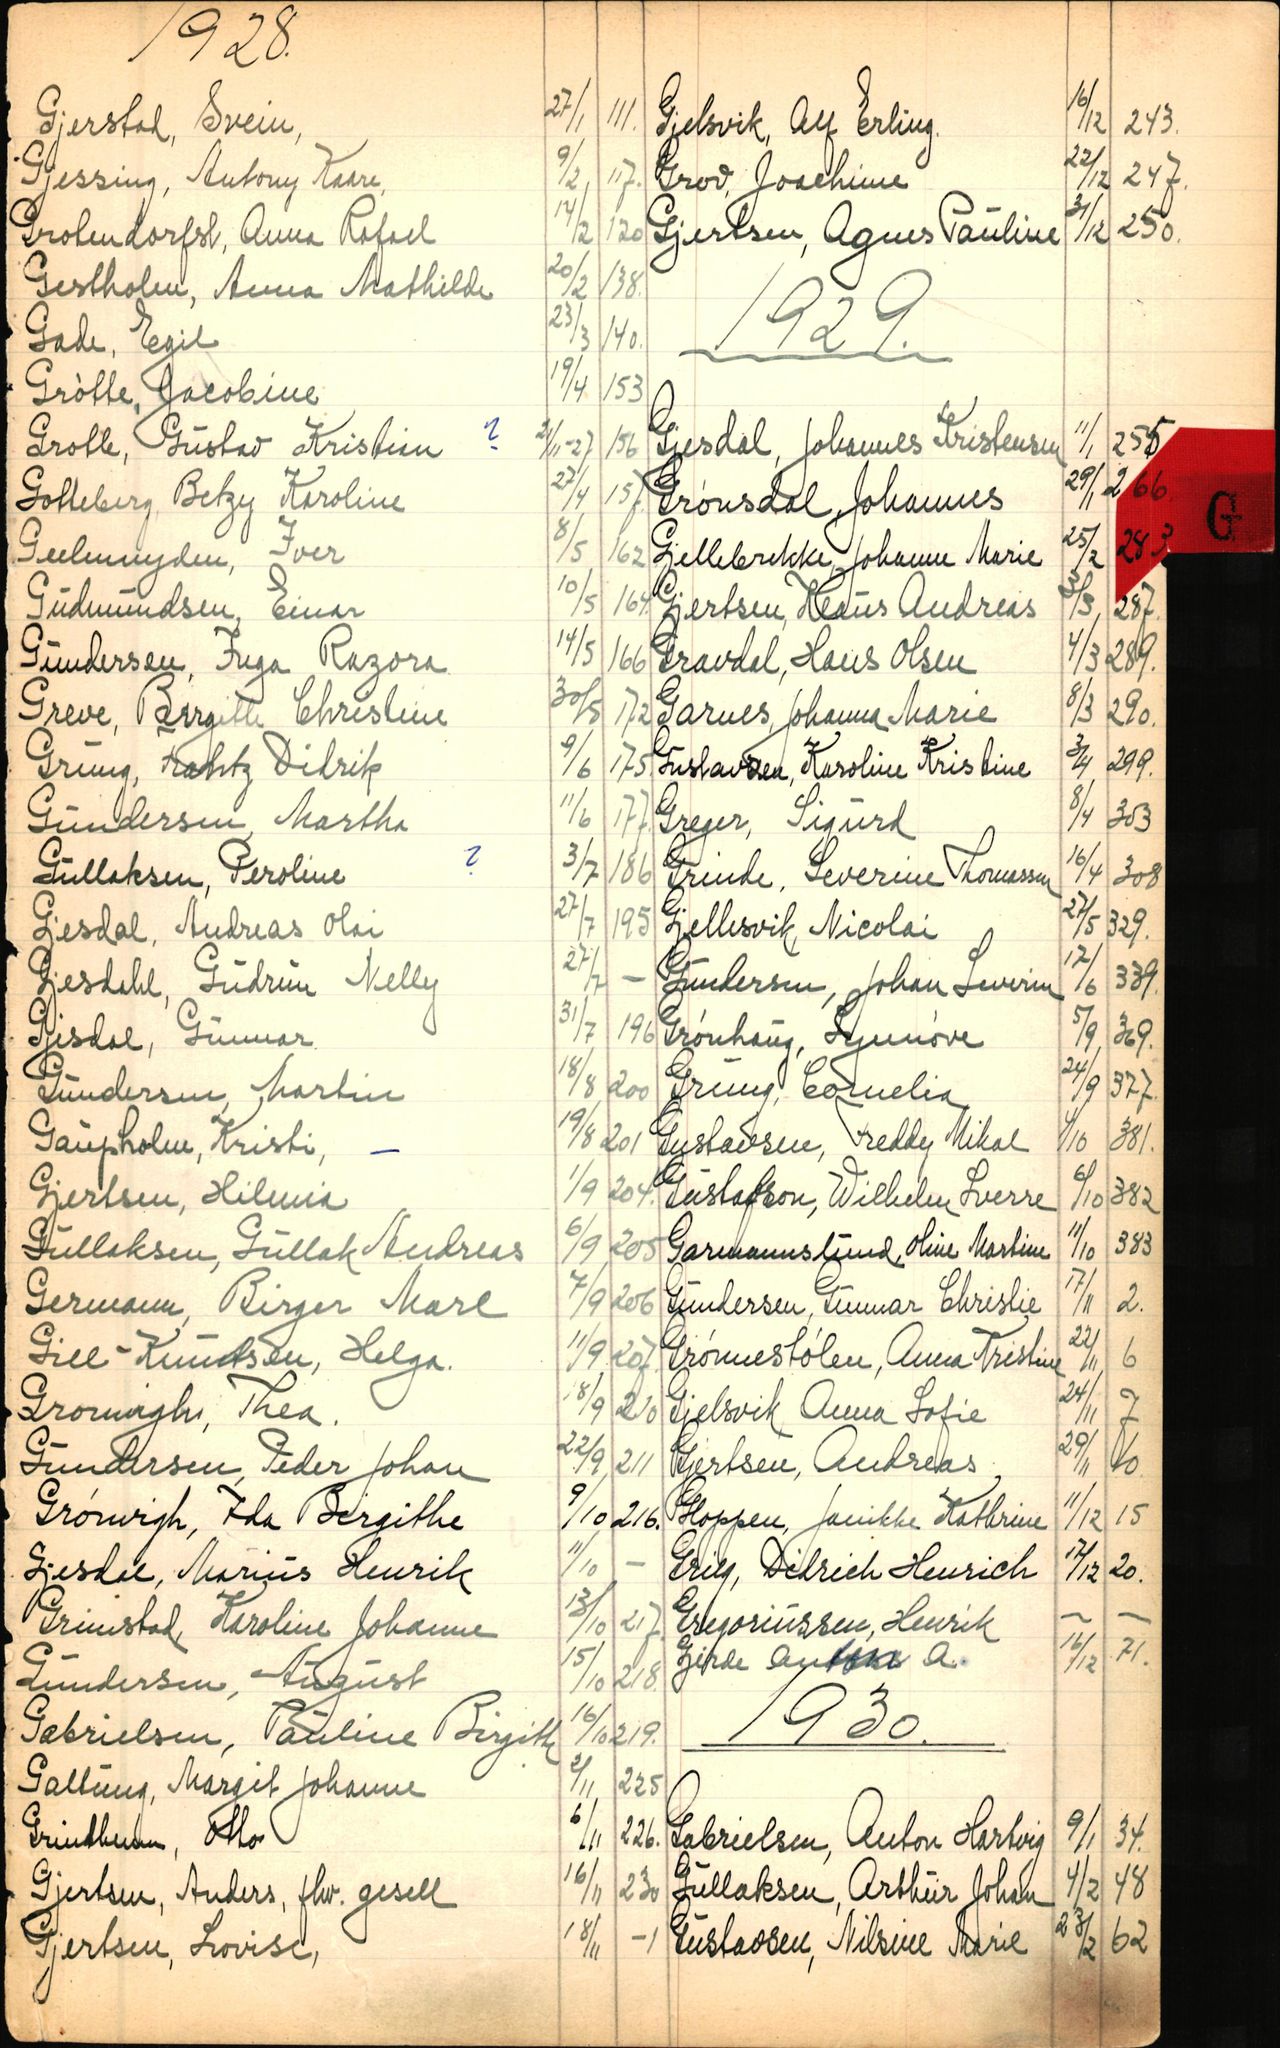 1928.
Gjerstad, Svein, 27/1 111.
Gjessing, Antony Kaare, 9/2 117.
Grotendorfst, Anna Rafael 14/2 120
Gestholm, Anna Mathilde 20/2 138.
Gade, Egil 23/3 140.
Grötte, Jacobine 19/4 153
Grotle, Gustav Kristian ? 2/11-27 156
Gotteberg, Betzy Karoline 27/4 157.
Geelmuyden, Iver 8/5 162
Gudmundsen, Einar 10/5 164.
Gundersen, Inga Razora 14/5 166
Greve, Birgitte Christine 30/5 172
Grung, Frantz Didrik 9/6 175
Gundersen, Martha 11/6 177.
Gullaksen, Peroline ? 3/7 186
Gjesdal, Andreas Olai 27/7 195
Gjesdahl, Gudrun Nelly 27/7 –
Gjesdal, Gunnar 31/7 196
Gundersen, Martin 18/8 200
Gaupholm, Kristi, – 19/8 201
Gjertsen, Hilmia 1/9 204.
Gullaksen, Gullak Andreas 6/9 205
Germann, Birger Marl 7/9 206
Gill-Knudsen, Helga. 11/9 207.
Gronvigh, Thea. 18/9 210
Gundersen, Peder Johan 22/9 211
Grónvigh, Ida Birgithe 9/10 216.
Gjesdal, Marius Henrik 11/10 –
Grimstad, Karoline Johanne 13/10 217.
Gundersen, August 15/10 218.
Gabrielsen, Pauline Birgith 16/10 219.
Galtung, Margit Johanne 2/11 225
Grindheim, Otto 6/11 226.
Gjertsen, Anders, fhv. gesell 16/11 230
Gjertsen, Lovise, 18/11 –1
Gjelsvik, Alf Erling. 16/12 243.
Grov, Joachime 22/12 247.
Gjertsen, Agnes Pauline 31/12 250.
1929.
Gjesdal, Johannes Kristensen 11/1 255
Grönsdal, Johannes 29/1 266.
G
Gjellebrekke, Johanne Marie 25/2 283
Gjertsen, Hans Andreas 3/3 287.
Gravdal, Hans Olsen 4/3 289.
Garnes, Johanna Marie 8/3 290.
Gustavsen, Karoline Kristine 3/4 299.
Greger, Sigurd 8/4 303
Grinde, Severine Thomassen 16/4 308
Gjellesvik, Nicolai 27/5 329.
Gundersen, Johan Severin 17/6 339.
Grönhaug, Synnöve 5/9 369.
Grung, Cornelia 24/9 377.
Gustavsen, Freddy Mikal 4/10 381.
Gustafson, Wilhelm Sverre 6/10 382
Garmannslund, Oline Martine 11/10 383
Gundersen, Gunnar Christie 17/11 2.
Grönnestölen, Anna Kristine 22/11 6
Gjelsvik Anna Sofie 24/11 7
Gjertsen, Andreas 29/11 10.
Gloppen, Janikke Kathrine 11/12 15
Grieg, Didrich Henrich 17/12 20.
Gregoriussen, Henrik – –
Gjerde A. 16/12 71.
1930.
Gabrielsen, Anton Hartvig 9/1 34.
Gullaksen, Arthur Johan 4/2 48
Gustavsen, Nilsine Marie 23/2 62